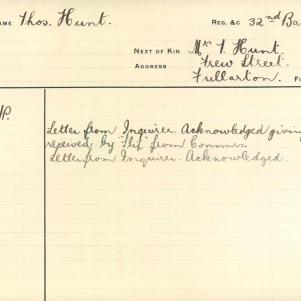 NAME Thos. Hunt. REG. &c 32nd Ba
NEXT OF KIN Mr T. Hunt.
ADDRESS Frew Street.
Fullarton.
Letter from Inquirer. Acknowledged giving
received by "Slip" from Commrs.
Letter from Inquirer. Acknowledged.